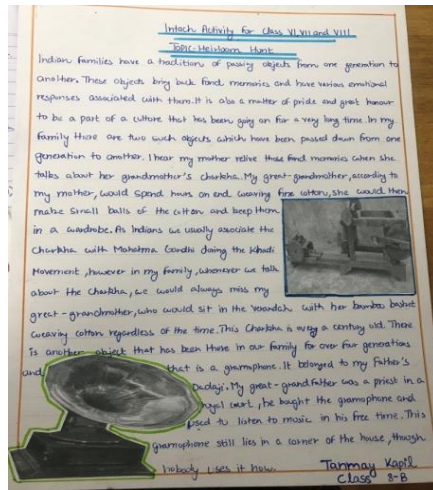 Intach Activity for Class VI, VII and VIII
Topic-Heirloom Hunt
Indian families have a tradition of passing objects from one generation to
another. These objects bring back fond memories and have various emotional
responses associated with them. It is also a matter of pride and great honour
to be a part of a culture that has been going on for a very long time. In my
family there are two such objects which have been passed down from one
generation to another. I hear my mother relive those fond memories when she
talks about her grandmother's charkha. My great-grandmother, according to
my mother, would spend hours on end weaving fine cotton, she would then
make small balls of the cotton and keep them
in a wardrobe. As Indians we usually associate the
Charkha with Mahatma Gandhi during the Khadi
Movement, however in my family, whenever we talk
about the Charkha, we would always miss my
great-grandmother, who would sit in the verandah with her bamboo basket
weaving cotton regardless of the time. This Charkha is a century old. There
is another object that has been there in our family for over four generations
and that is a gramphone. It belonged to my Father's
Dadaji. My great-grandfather was a priest in a
royal court, he bought the gramophone and
used to listen to music in his free time. This
gramophone still lies in a corner of the house, though
nobody uses it now.
Tanmay Kapil
Class 8-B